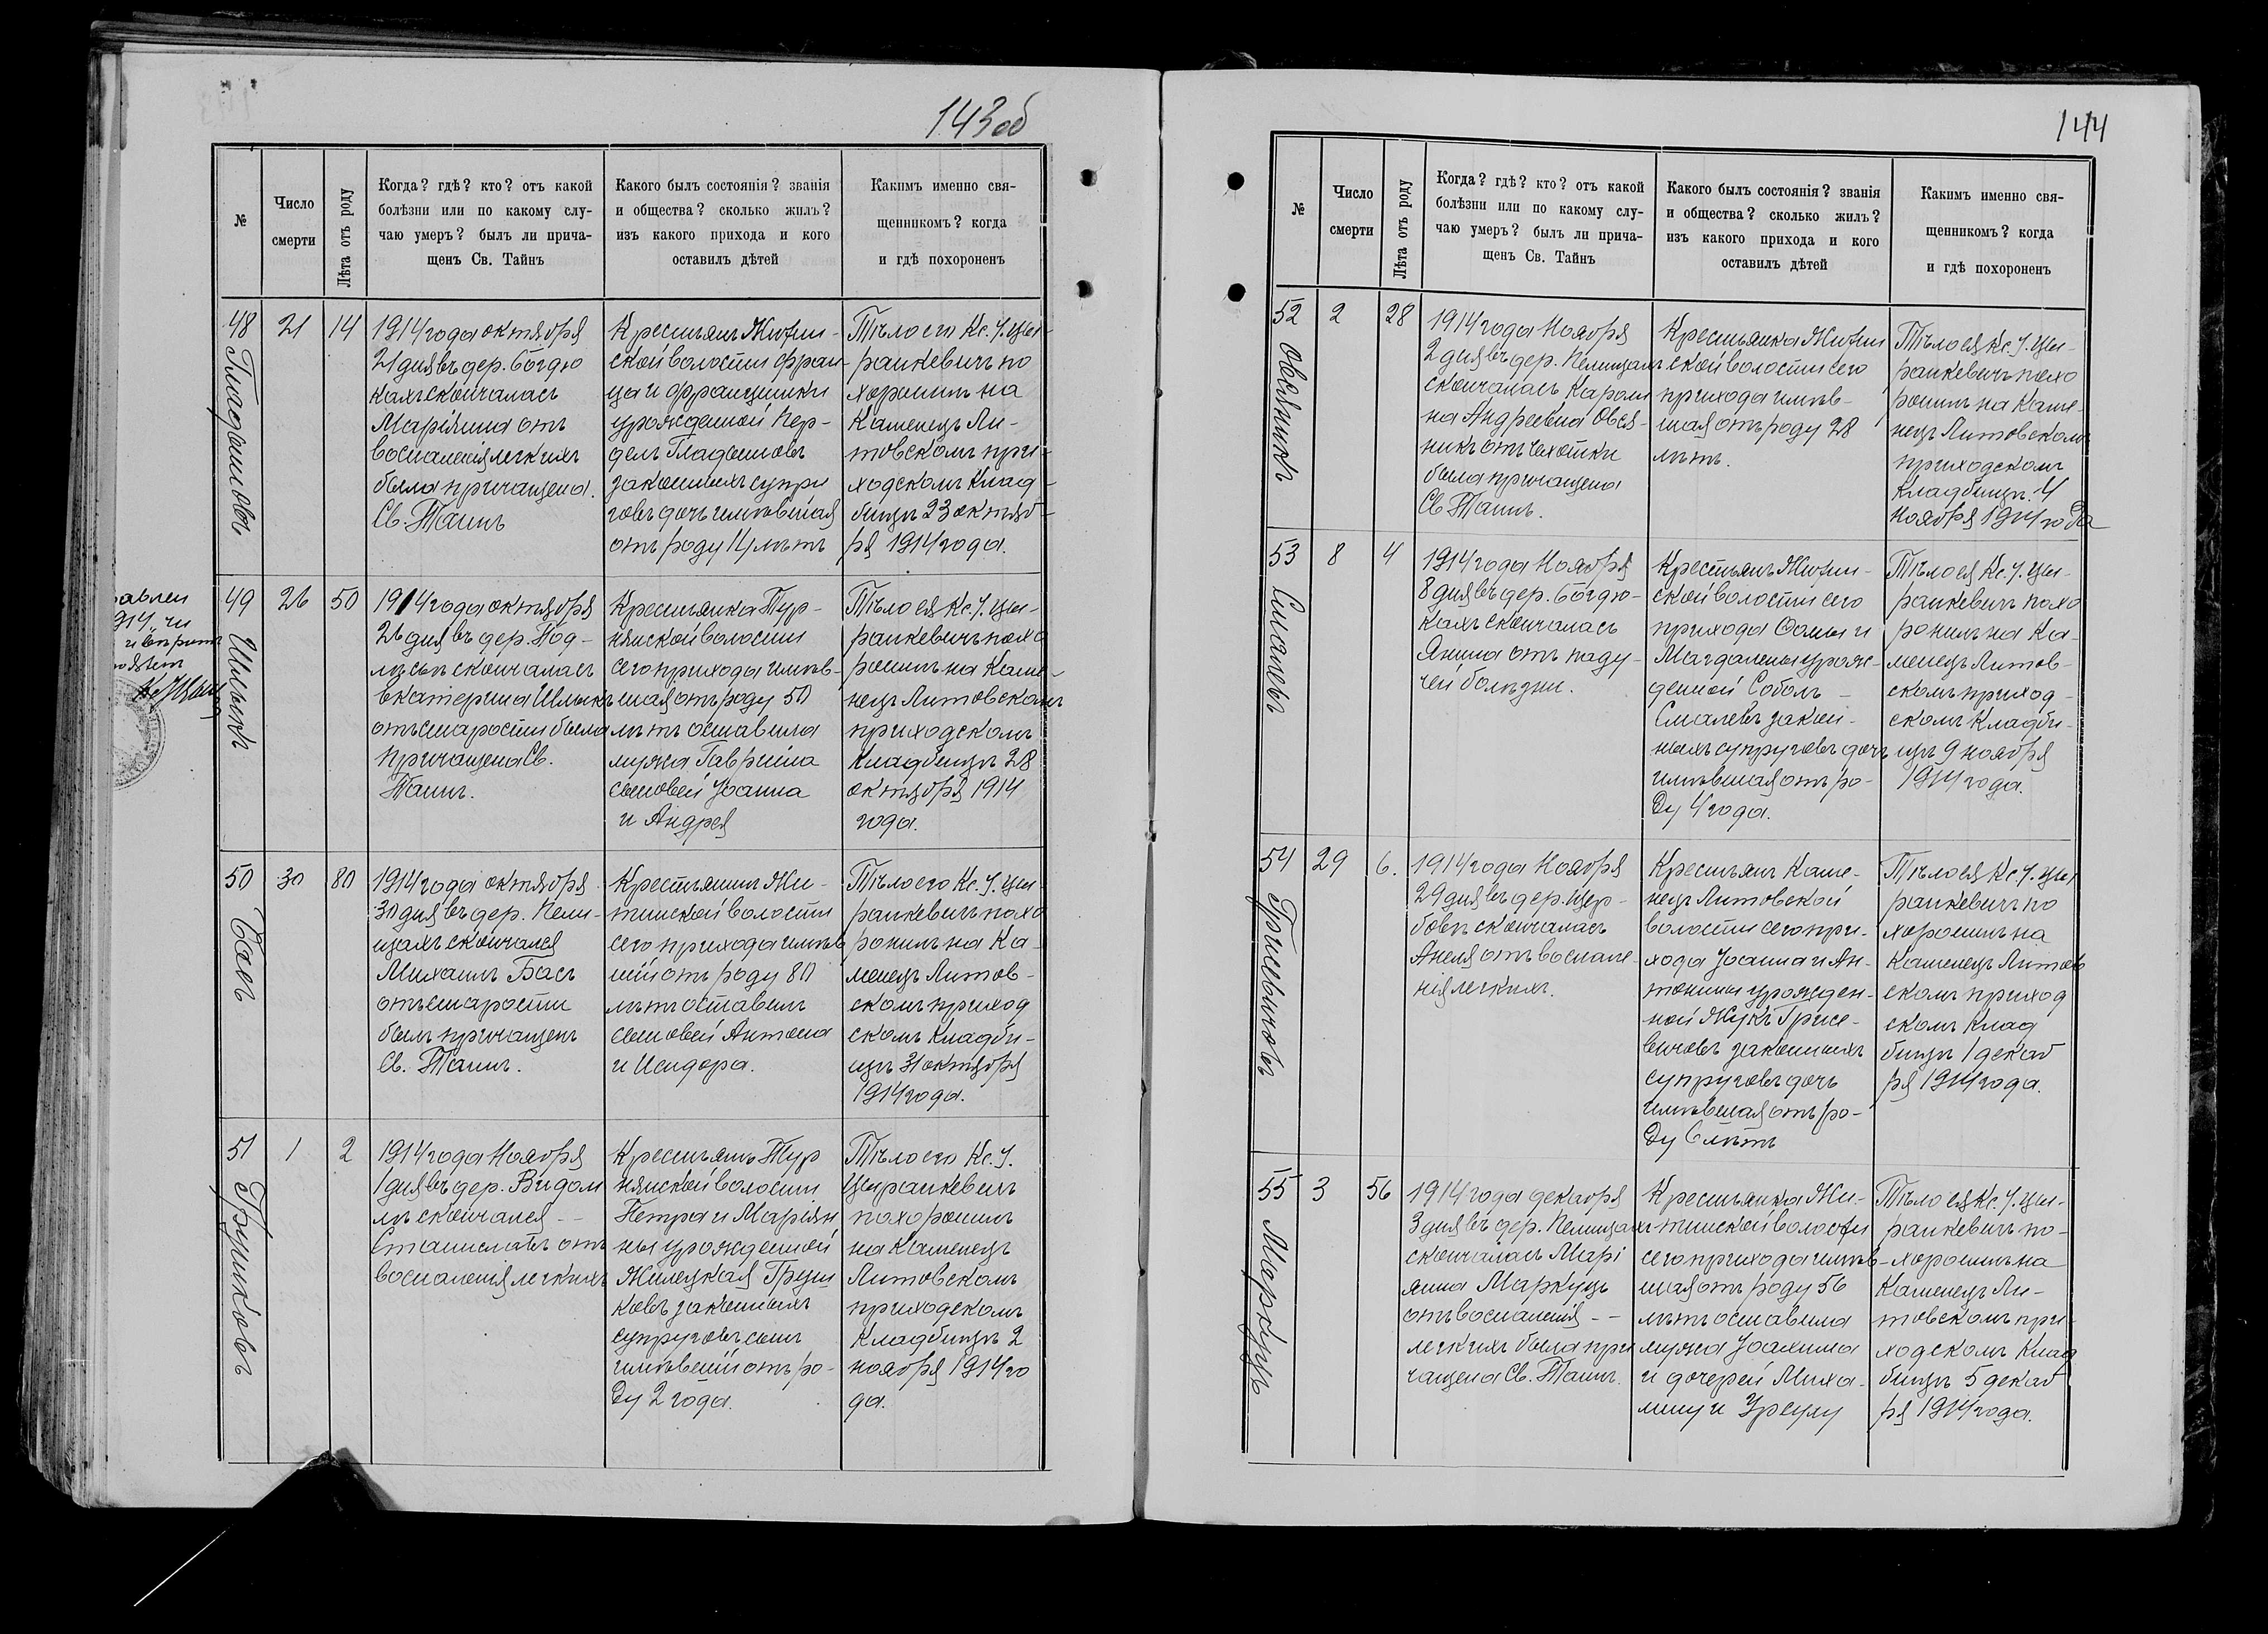 143об
№
Число
смерти
Лѣта отъ роду
Когда? гдѣ? кто? отъ какой
болѣзни или по какому слу-
чаю умеръ? былъ ли прича-
щенъ Св. Тайнъ
Какого былъ состоянія? званія
и общества? сколько жилъ?
изъ какого прихода и кого
оставилъ дѣтей
Какимъ именно свя-
щенникомъ? когда
и гдѣ похороненъ
48
21
14
1914 года октября
21 дня въ дер. Богдю
кахъ скончалась
Маріянна отъ
воспаленія легкихъ
была причащена
Св. Таинъ
Крестьянъ Житин-
ской волости Фран-
ца и Францишки
урожденной Пер-
делъ Гладышовъ
законныхъ супру
говъ дочь имѣвшая
отъ роду 14 лѣтъ
Тѣло его Кс. І. Цы-
ранкевичъ по
хоронилъ на
Каменецъ Ли-
товскомъ при-
ходскомъ клад-
бищѣ 23 октяб-
ря 1914 года.
49
Шлыкъ
26
50
1914 года октября
26 дня въ дер. Под-
лѣсьѣ скончалась
Екатерина Шлыкъ
отъ старости была
причащена Св.
Таинъ.
Крестьянка Тур-
нянской волости
сего прихода имѣв-
шая отъ роду 50
лѣтъ оставила
мужа Гавріила
сыновей Іоанна
и Андрея
Тѣло ея Кс. І. Цы-
ранкевичъ похо
ронилъ на Каме-
нецъ Литовскомъ
приходскомъ
кладбищѣ 28
октября 1914
года.
50
Басъ
30
80
1914 года октября
30 дня въ дер. Пели-
щахъ скончался
Михаилъ Басъ
отъ старости
былъ причащенъ
Св. Таинъ.
Крестьянинъ Жи-
тинской волости
сего прихода имѣв
шій отъ роду 80
лѣтъ оставилъ
сыновей Антона
и Исидора.
Тѣло его Кс. І. Цы-
ранкевичъ похо
ронилъ на Ка-
менецъ Литов-
скомъ приход
скомъ кладби-
щѣ 31 октября
1914 года.
51
Грушковъ
1
2
1914 года Ноября
1 дня въ дер. Видом
лѣ скончался --
Станиславъ отъ
воспаленія легкихъ
Крестьянъ Тур
нянской волости
Петра и Маріян
ны урожденной
Жилецкая Груш
ковъ законныхъ
супруговъ сынъ
имѣвшій отъ ро-
ду 2 года.
Тѣло его Кс. І.
Цыранкевичъ
похоронилъ
на Каменецъ
Литовскомъ
приходскомъ
кладбищѣ 2
ноября 1914 го
да.
144
№
Число
смерти
Лѣта отъ роду
Когда? гдѣ? кто? отъ какой
болѣзни или по какому слу-
чаю умеръ? былъ ли прича-
щенъ Св. Тайнъ
Какого былъ состоянія? званія
и общества? сколько жилъ?
изъ какого прихода и кого
оставилъ дѣтей
Какимъ именно свя-
щенникомъ? когда
и гдѣ похороненъ
52
Овсяникъ
2
28
1914 года Ноября
2 дня въ дер. Пелищахъ
скончалась Кароли
на Андреевна Овся-
никъ отъ чахотки
была причащена
Св Таинъ.
Крестьянка Житин
ской волости сего
прихода имѣв-
шая отъ роду 28
лѣтъ.
Тѣло ея Кс. І. Цы-
ранкевичъ похо
ронилъ на Каме-
нецъ Литовскомъ
приходскомъ
кладбищѣ 4
ноября 1914 года
53
Смалевъ
8
4
1914 года Ноября
8 дня въ дер. Богдю-
кахъ скончалась
Янина отъ паду-
чей болѣзни.
Крестьянъ Житин-
ской волости сего
прихода Ѳомы и
Магдалены урож-
денной Соболь -
Смалевъ закон-
ныхъ супруговъ дочь
имѣвшая отъ ро-
ду 4 года.
Тѣло ея Кс. І. Цы-
ранкевичъ похо
ронилъ на Ка-
менецъ Литов-
скомъ приход-
скомъ кладби-
щѣ 9 ноября
1914 года.
54
Гриневичовъ
29
6.
1914 года Ноября
29 дня въ дер. Щер-
бовѣ скончалась
Анеля отъ воспале-
нія легкихъ.
Крестьянъ Каме-
нецъ Литовской
волости сего при-
хода Іоанна и Ан-
тонины урожден-
ной Жукъ Грине-
вичовъ законныхъ
супруговъ дочь
имѣвшая отъ ро-
ду 6 лѣтъ
Тѣло ея Кс. І. Цы
ранкевичъ по
хоронилъ на
Каменецъ Литов
скомъ приход
скомъ клад
бищѣ 1 декаб
ря 1914 года.
55
Маркуцъ
3
56
1914 года декабря
3 дня въ дер. Пелищахъ
скончалась Марі
янна Маркуцъ
отъ воспаленія --
легкихъ была при
чащена Св. Таинъ.
Крестьянка Жи-
тинской волости
сего прихода имѣв-
шая отъ роду 56
лѣтъ оставила
мужа Іоахима
и дочерей Миха-
лину и Урсулу
Тѣло ея Кс. І. Цы-
ранкевичъ по-
хоронилъ на
Каменецъ Ли-
товскомъ при
ходскомъ клад
бищѣ 5 декаб
ря 1914 года.